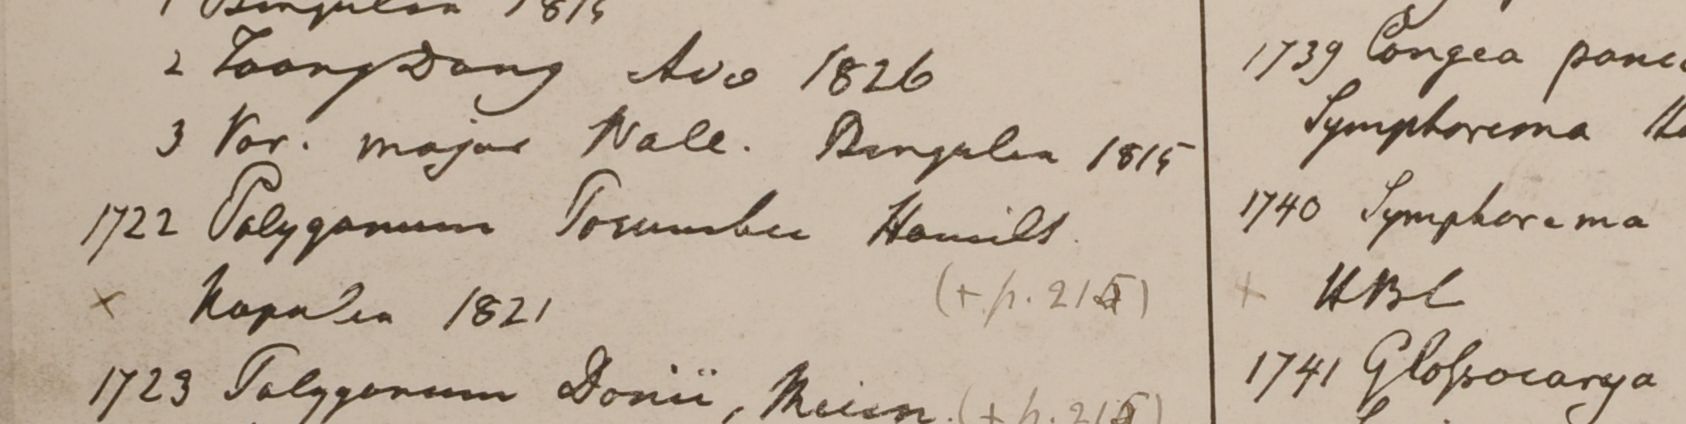 1 Bengalea 1815
2 Taong Dong Ava 1826
3 Var. major Wall. Bengalea 1815
1722 Polygonum Posumbu Hamilt.
x Napalia 1821 (+ p. 215)
1723 Polygonum Donii, Meisn. (+ p. 215)
1739 Congea
Symphorema
1740 Symphorema
+ HBC
1741 Gloſsocarya